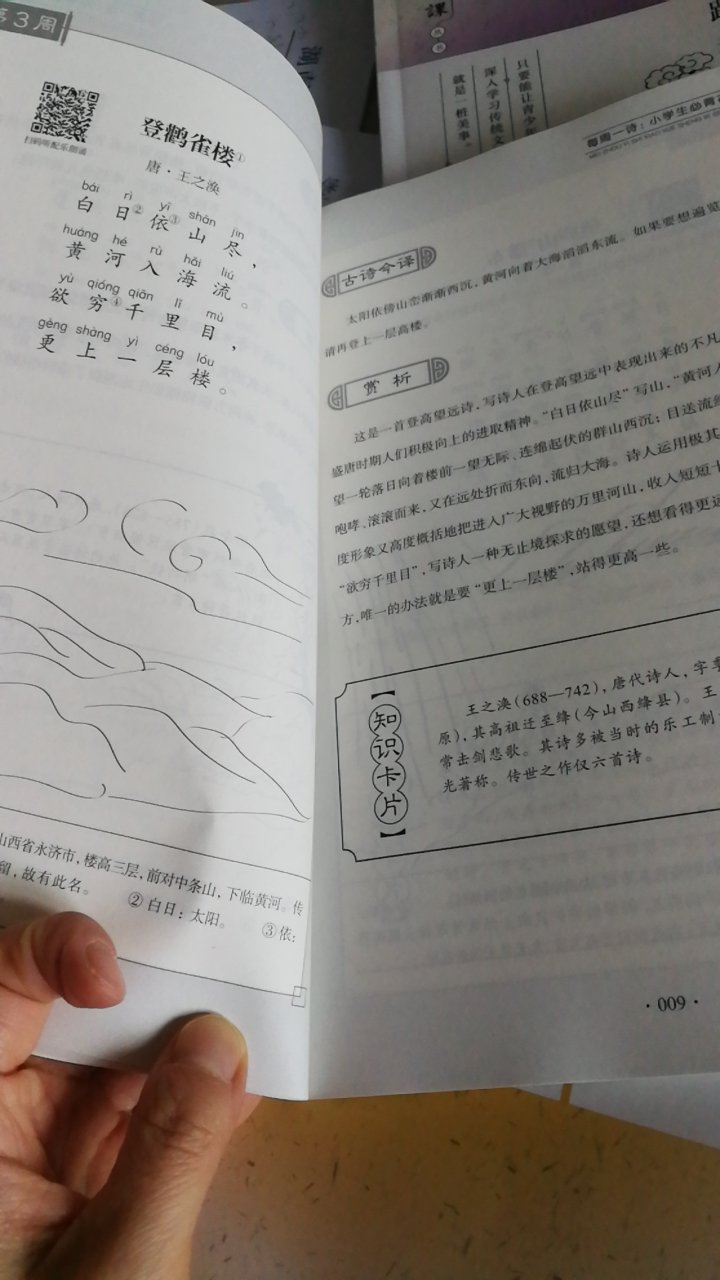 第3周
扫码听配乐朗诵
登鹳雀楼①
唐·王之涣
bái rì yī shān jìn
白日②依③山尽，
huáng hé rù hǎi liú
黄河入海流。
yù qióng qiān lǐ mù
欲穷④千里目，
gèng shàng yì céng lóu
更上一层楼。
山西省永济市，楼高三层，前对中条山，下临黄河。传
留，故有此名。 ②白日：太阳。 ③依：
課
只要能让青少年
深入学习传统文
就是一桩美事。
每周一诗：小学生必背古
古诗今译
太阳依傍山峦渐渐西沉，黄河向着大海滔滔东流。如果要想遍览
请再登上一层高楼。
赏析
这是一首登高望远诗，写诗人在登高望远中表现出来的不凡
盛唐时期人们积极向上的进取精神。“白日依山尽”写山，“黄河入
望一轮落日向着楼前一望无际、连绵起伏的群山西沉；目送流经
咆哮、滚滚而来，又在远处折而东向，流归大海。诗人运用极其
度形象又高度概括地把进入广大视野的万里河山，收入短短十
“欲穷千里目”，写诗人一种无止境探求的愿望，还想看得更远
方，唯一的办法就是要“更上一层楼”，站得更高一些。
【知识卡片】
王之涣（688—742），唐代诗人，字季
原），其高祖迁至绛（今山西绛县）。王
常击剑悲歌。其诗多被当时的乐工制
光著称。传世之作仅六首诗。
·009·